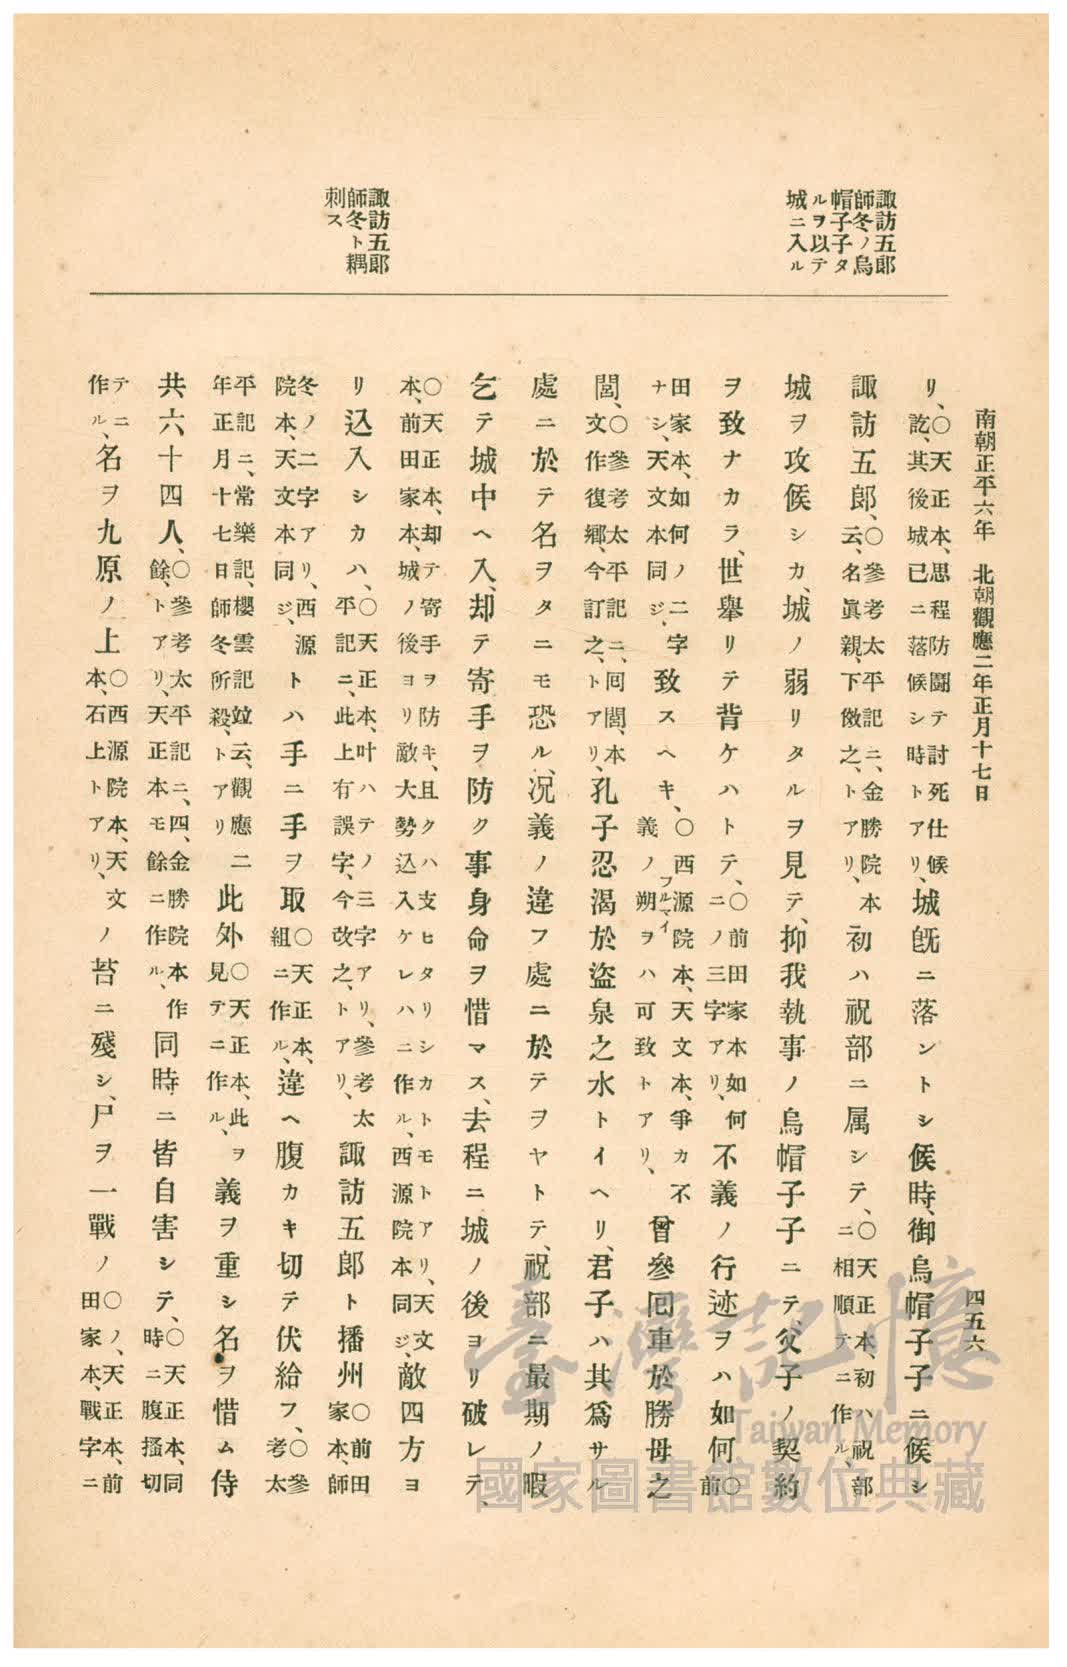 南朝正平六年　北朝觀應二年正月十七日
四五六
諏訪五郎
師冬ノ烏
帽子子タ
ルヲ以テ
城ニ入ル
諏訪五郎
師冬ト耦
刺ス
リ、〇天正本、思程防鬪テ討死仕候訖、其後城已ニ落候シ時トアリ、城旣ニ落ントシ候時、御烏帽子子ニ候シ
諏訪五郎、〇參考太平記ニ、金勝院本云、名眞親、下倣之、トアリ、初ハ祝部ニ属シテ、〇天正本、初ハ祝部ニ相順テニ作ル、
城ヲ攻候シカ、城ノ弱リタルヲ見テ、抑我執事ノ烏帽子子ニテ、父子ノ契約
ヲ致ナカラ、世舉リテ背ケハトテ、〇前田家本如何ニノ三字アリ、不義ノ行迹ヲハ如何〇前
田家本、如何ノ二字ナシ、天文本同ジ、致スヘキ、〇西源院本、天文本、爭カ不義ノ朔フルマイヲハ可致トアリ、曾參囘車於勝母之
閭、〇參考太平記ニ、囘閭、本文作復鄕、今訂之、トアリ、孔子忍渴於盜泉之水トイヘリ、君子ハ其爲サル
處ニ於テ名ヲタニモ恐ル、況義ノ違フ處ニ於テヲヤトテ、祝部ニ最期ノ暇
乞テ城中ヘ入、却テ寄手ヲ防ク事身命ヲ惜マス、去程ニ城ノ後ヨリ破レテ、
〇天正本、却テ寄手ヲ防キ、且クハ支ヒタリシカトモトアリ、天文本、前田家本、城ノ後ヨリ敵大勢込入ケレハニ作ル、西源院本同ジ、敵四方ヨ
リ込入シカハ、〇天正本、叶ハテノ三字アリ、參考太平記ニ、此上有誤字、今改之、トアリ、諏訪五郎ト播州〇前田家本、師
冬ノ二字アリ、西源院本、天文本同ジ、トハ手ニ手ヲ取〇天正本、組ニ作ル、違ヘ腹カキ切テ伏給フ、〇參考太
平記ニ、常樂記、櫻雲記竝云、觀應二年正月十七日師冬所殺、トアリ此外〇天正本、此ヲ見テニ作ル、義ヲ重シ名ヲ惜ム侍
共六十四人、〇參考太平記ニ、四、金勝院本作餘、トアリ、天正本モ餘ニ作ル、同時ニ皆自害シテ、〇天正本、同時ニ腹搔切
テニ作ル、名ヲ九原ノ上〇西源院本、天文本、石上トアリ、ノ苔ニ殘シ、尸ヲ一戰ノ〇ノ、天正本、前田家本、戰字ニ
臺灣記憶
Taiwan Memory
國家圖書館數位典藏